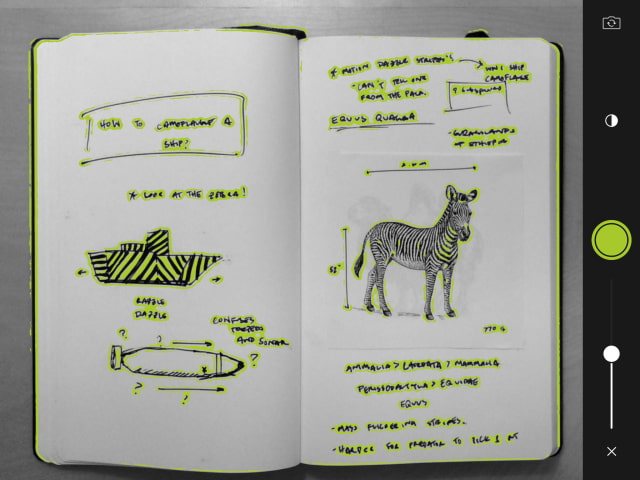 HOW TO CAMOFLAUGE A
SHIP?
* LOOK AT THE ZEBRA!
RAZZLE
DAZZLE
CONFUSES
TORPEDO
AND SONAR
?
?
?
?
?
* MOTION DAZZLE STRIPES
WW1 SHIP
CAMOFLAGE
- CAN'T TELL ONE
FROM THE PACK.
EQUUS QUAGGA
- GRASSLANDS
OF ETHIOPIA
52"
770 lb
ANIMALIA > CHORDATA > MAMMALIA
PERISSODACTYLA > EQUIDAE
EQUUS
- MASS FLICKERING STRIPES.
- HARDER FOR PREDATOR TO PICK 1 AT